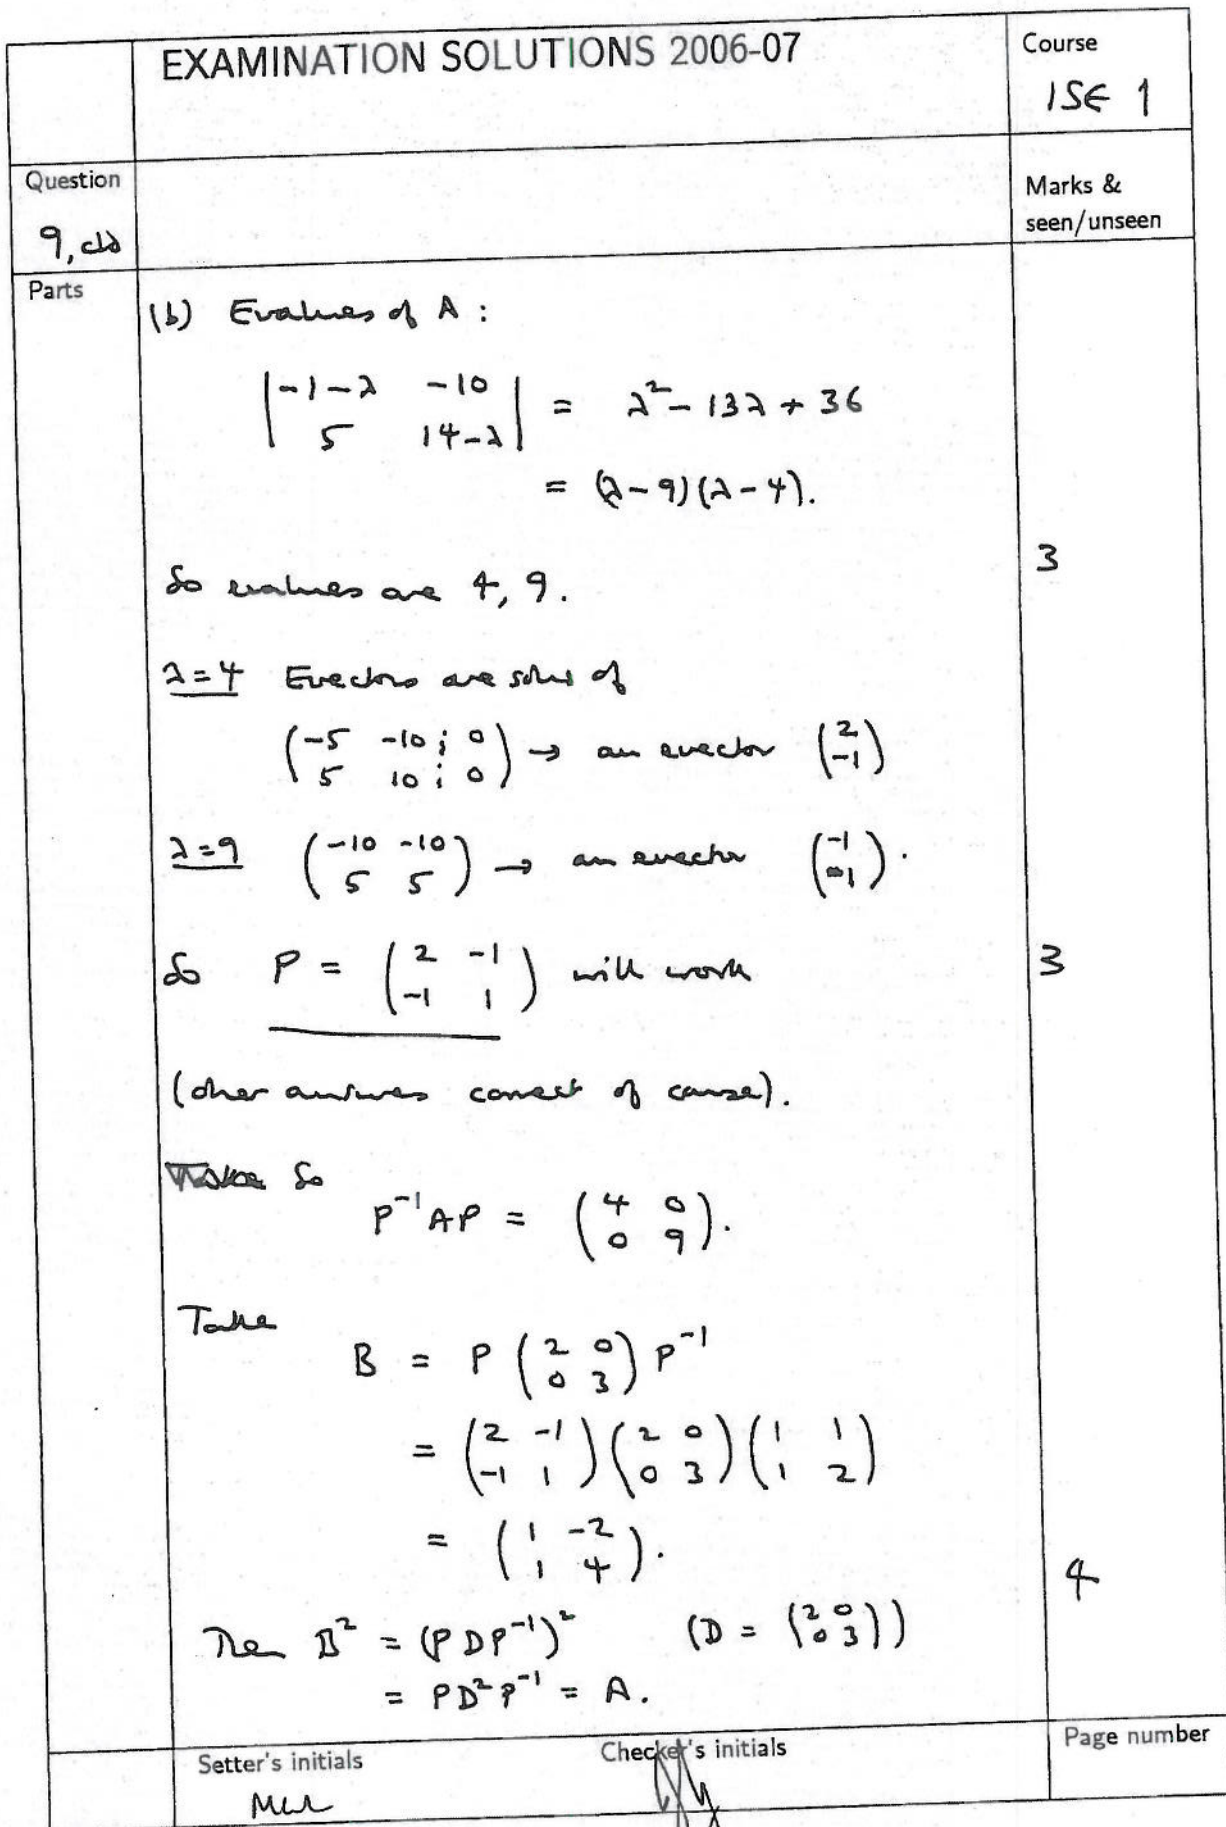 EXAMINATION SOLUTIONS 2006-07
Course
ISE 1
Question
9, ctd
Marks &
seen/unseen
Parts
(b) Evalues of A :
| -1-λ -10 |
| 5 14-λ | = λ² - 13λ + 36
= (λ-9)(λ-4).
So evalues are 4, 9.
3
λ=4 Evectors are solns of
( -5 -10 ; 0 )
( 5 10 ; 0 ) → an evector ( 2 )
( -1 )
λ=9 ( -10 -10 )
( 5 5 ) → an evector ( -1 )
( 1 ).
So P = ( 2 -1 )
( -1 1 ) will work
3
(other answers correct of course).
So
P⁻¹AP = ( 4 0 )
( 0 9 ).
Take
B = P ( 2 0 )
( 0 3 ) P⁻¹
= ( 2 -1 ) ( 2 0 ) ( 1 1 )
( -1 1 ) ( 0 3 ) ( 1 2 )
= ( 1 -2 )
( 1 4 ).
4
Then B² = (PDP⁻¹)² (D = ( 2 0 )
( 0 3 ))
= PD²P⁻¹ = A.
Setter's initials
Checker's initials
Page number